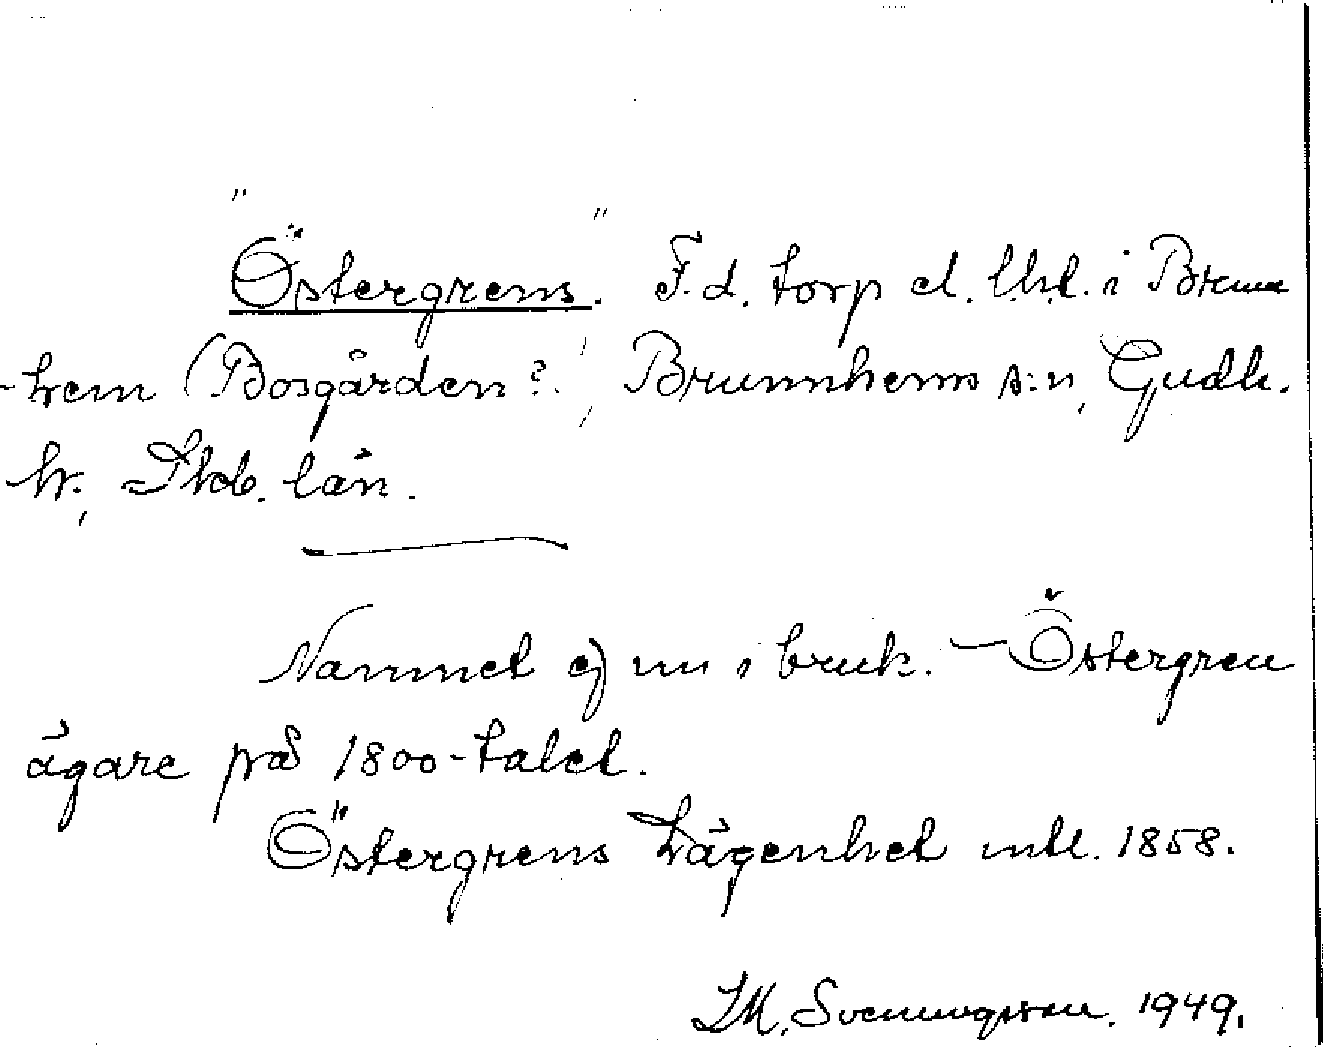 "Östergrens". F.d. torp el. lht. i Brunn
-hem (Bosgården?), Brunnhems s:n, Gudh.
hr, Skb. län.
Namnet ej nu i bruk. – Östergren
ägare på 1800-talet.
Östergrens Lägenhet mtl. 1858.
Svenningsson. 1949.